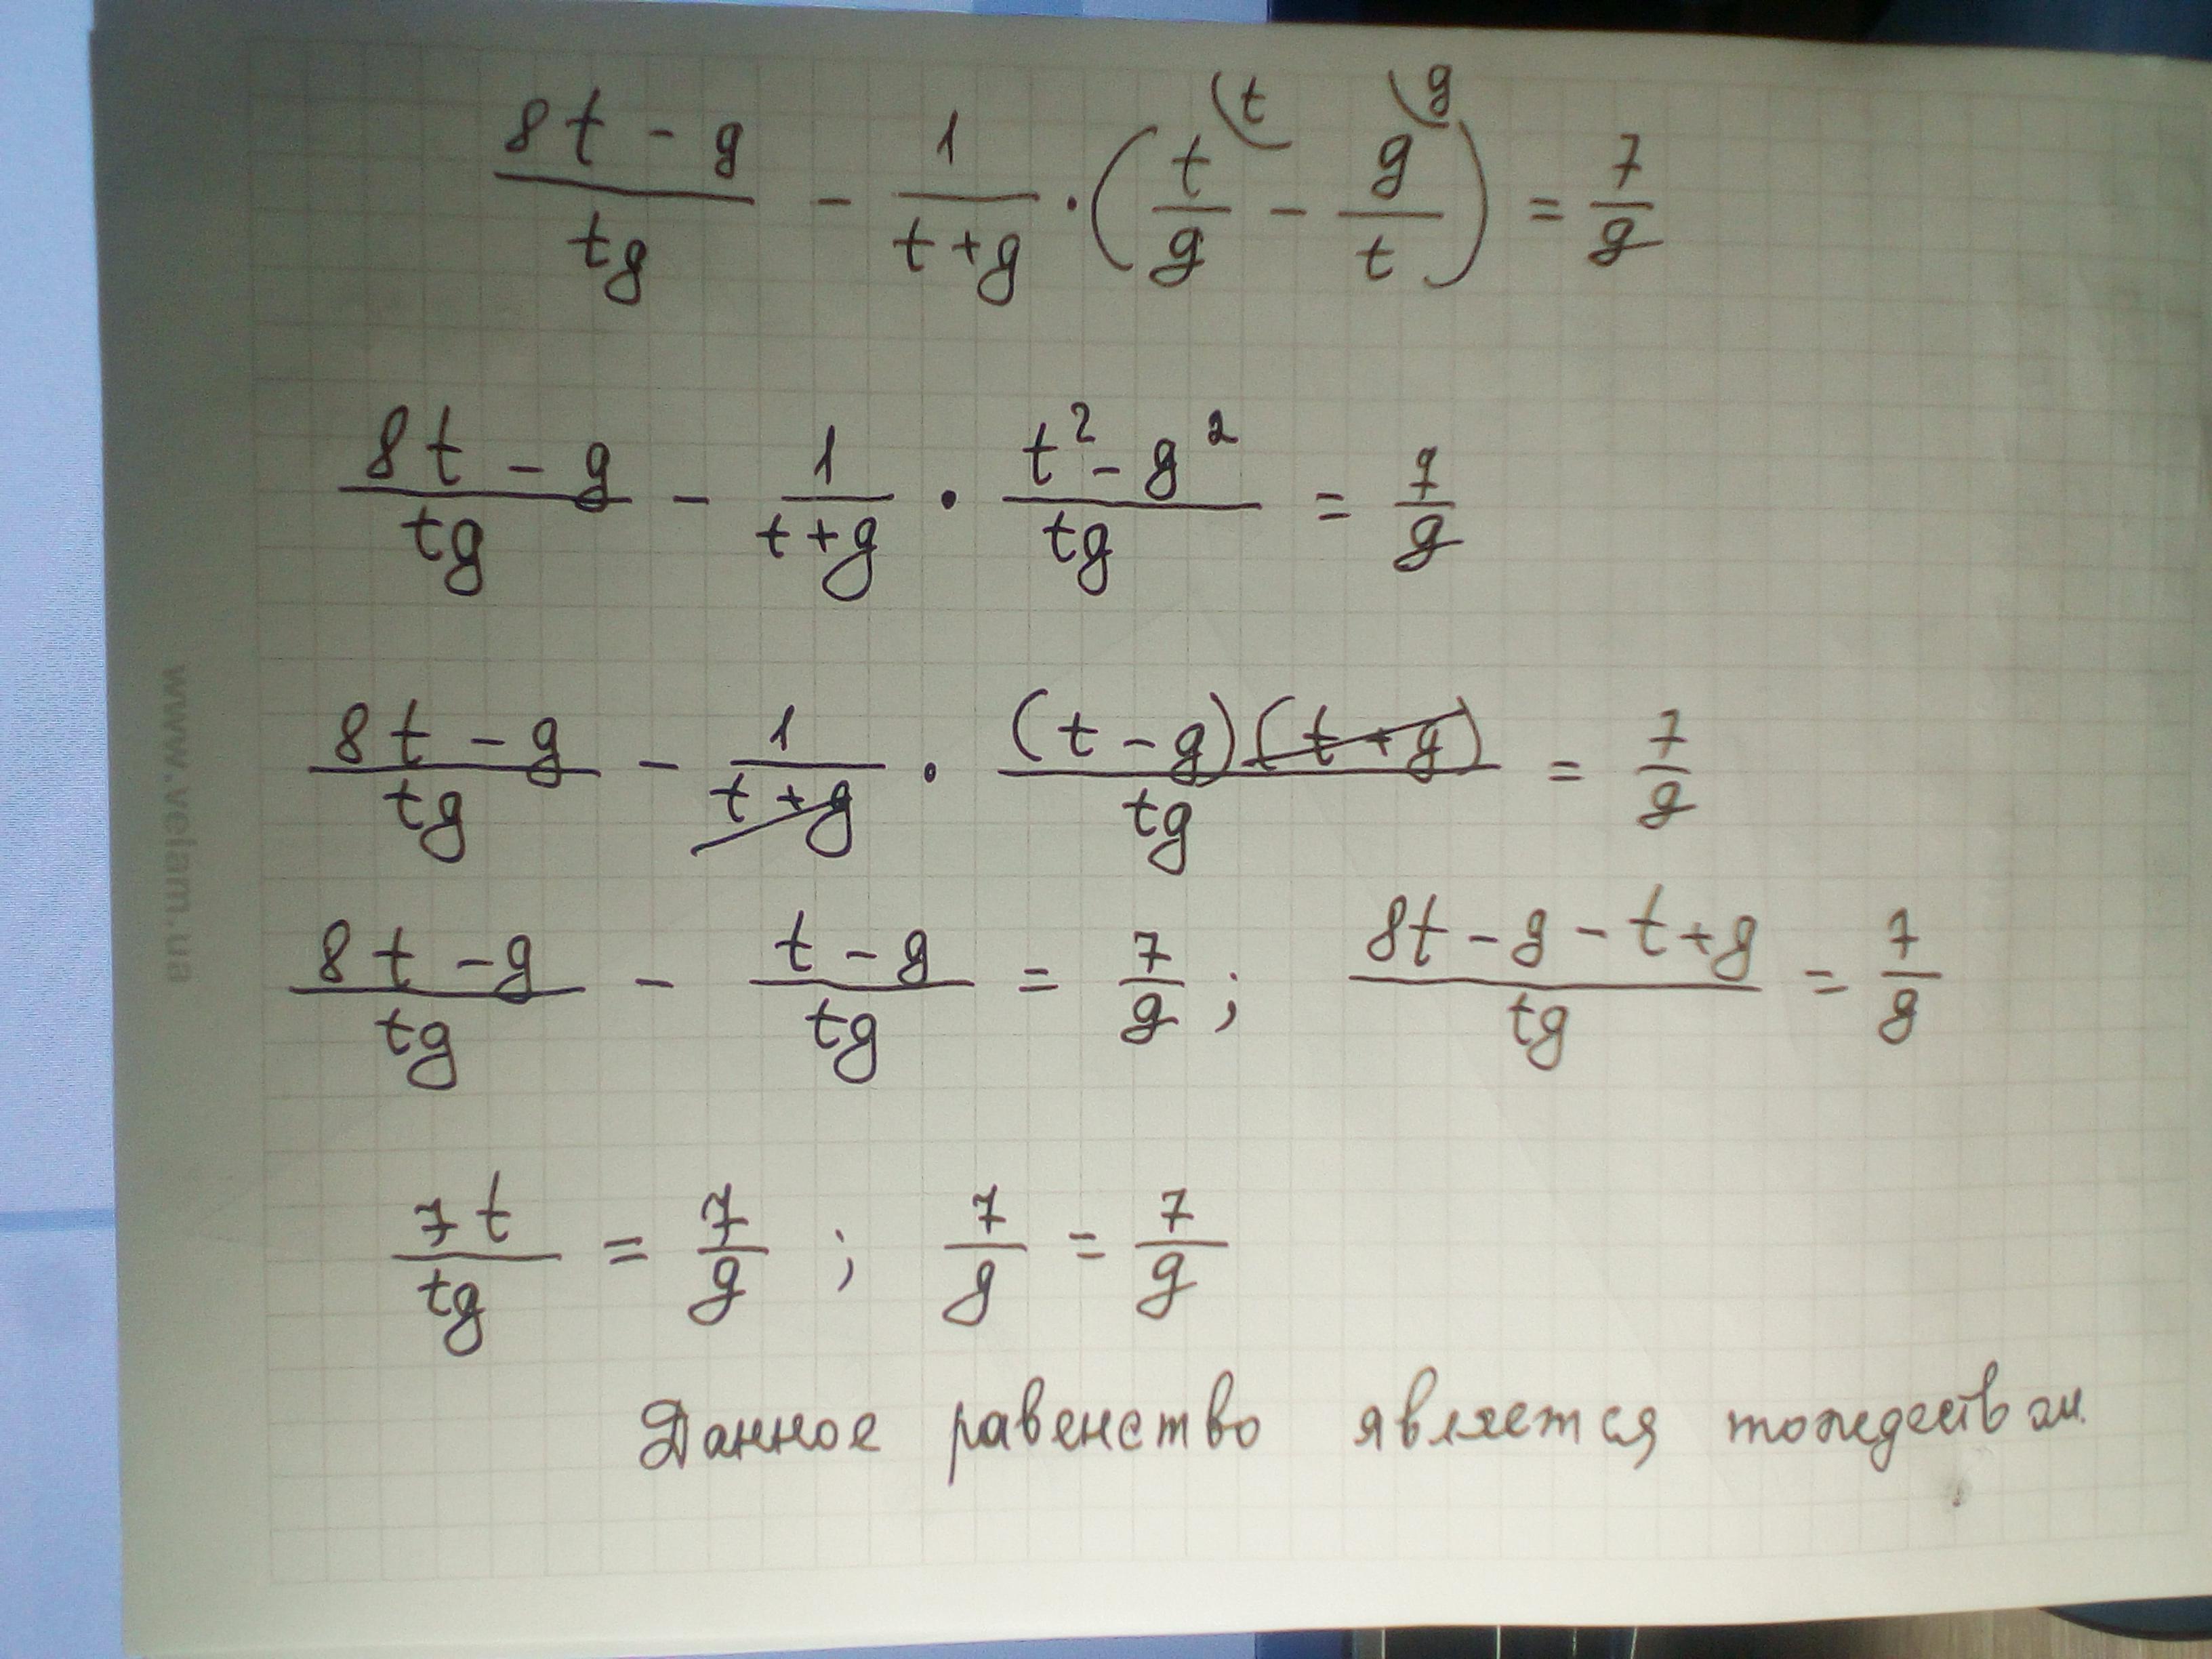 (8t - g)/(tg) - 1/(t+g) · (t/g (t - g/t (g) = 7/g
(8t - g)/(tg) - 1/(t+g) · (t² - g²)/(tg) = 7/g
(8t - g)/(tg) - 1/(t+g) · (t - g)(t + g)/(tg) = 7/g
(8t - g)/(tg) - (t - g)/(tg) = 7/g ; (8t - g - t + g)/(tg) = 7/g
7t/(tg) = 7/g ; 7/g = 7/g
Данное равенство является тождеством.
www.velam.ua